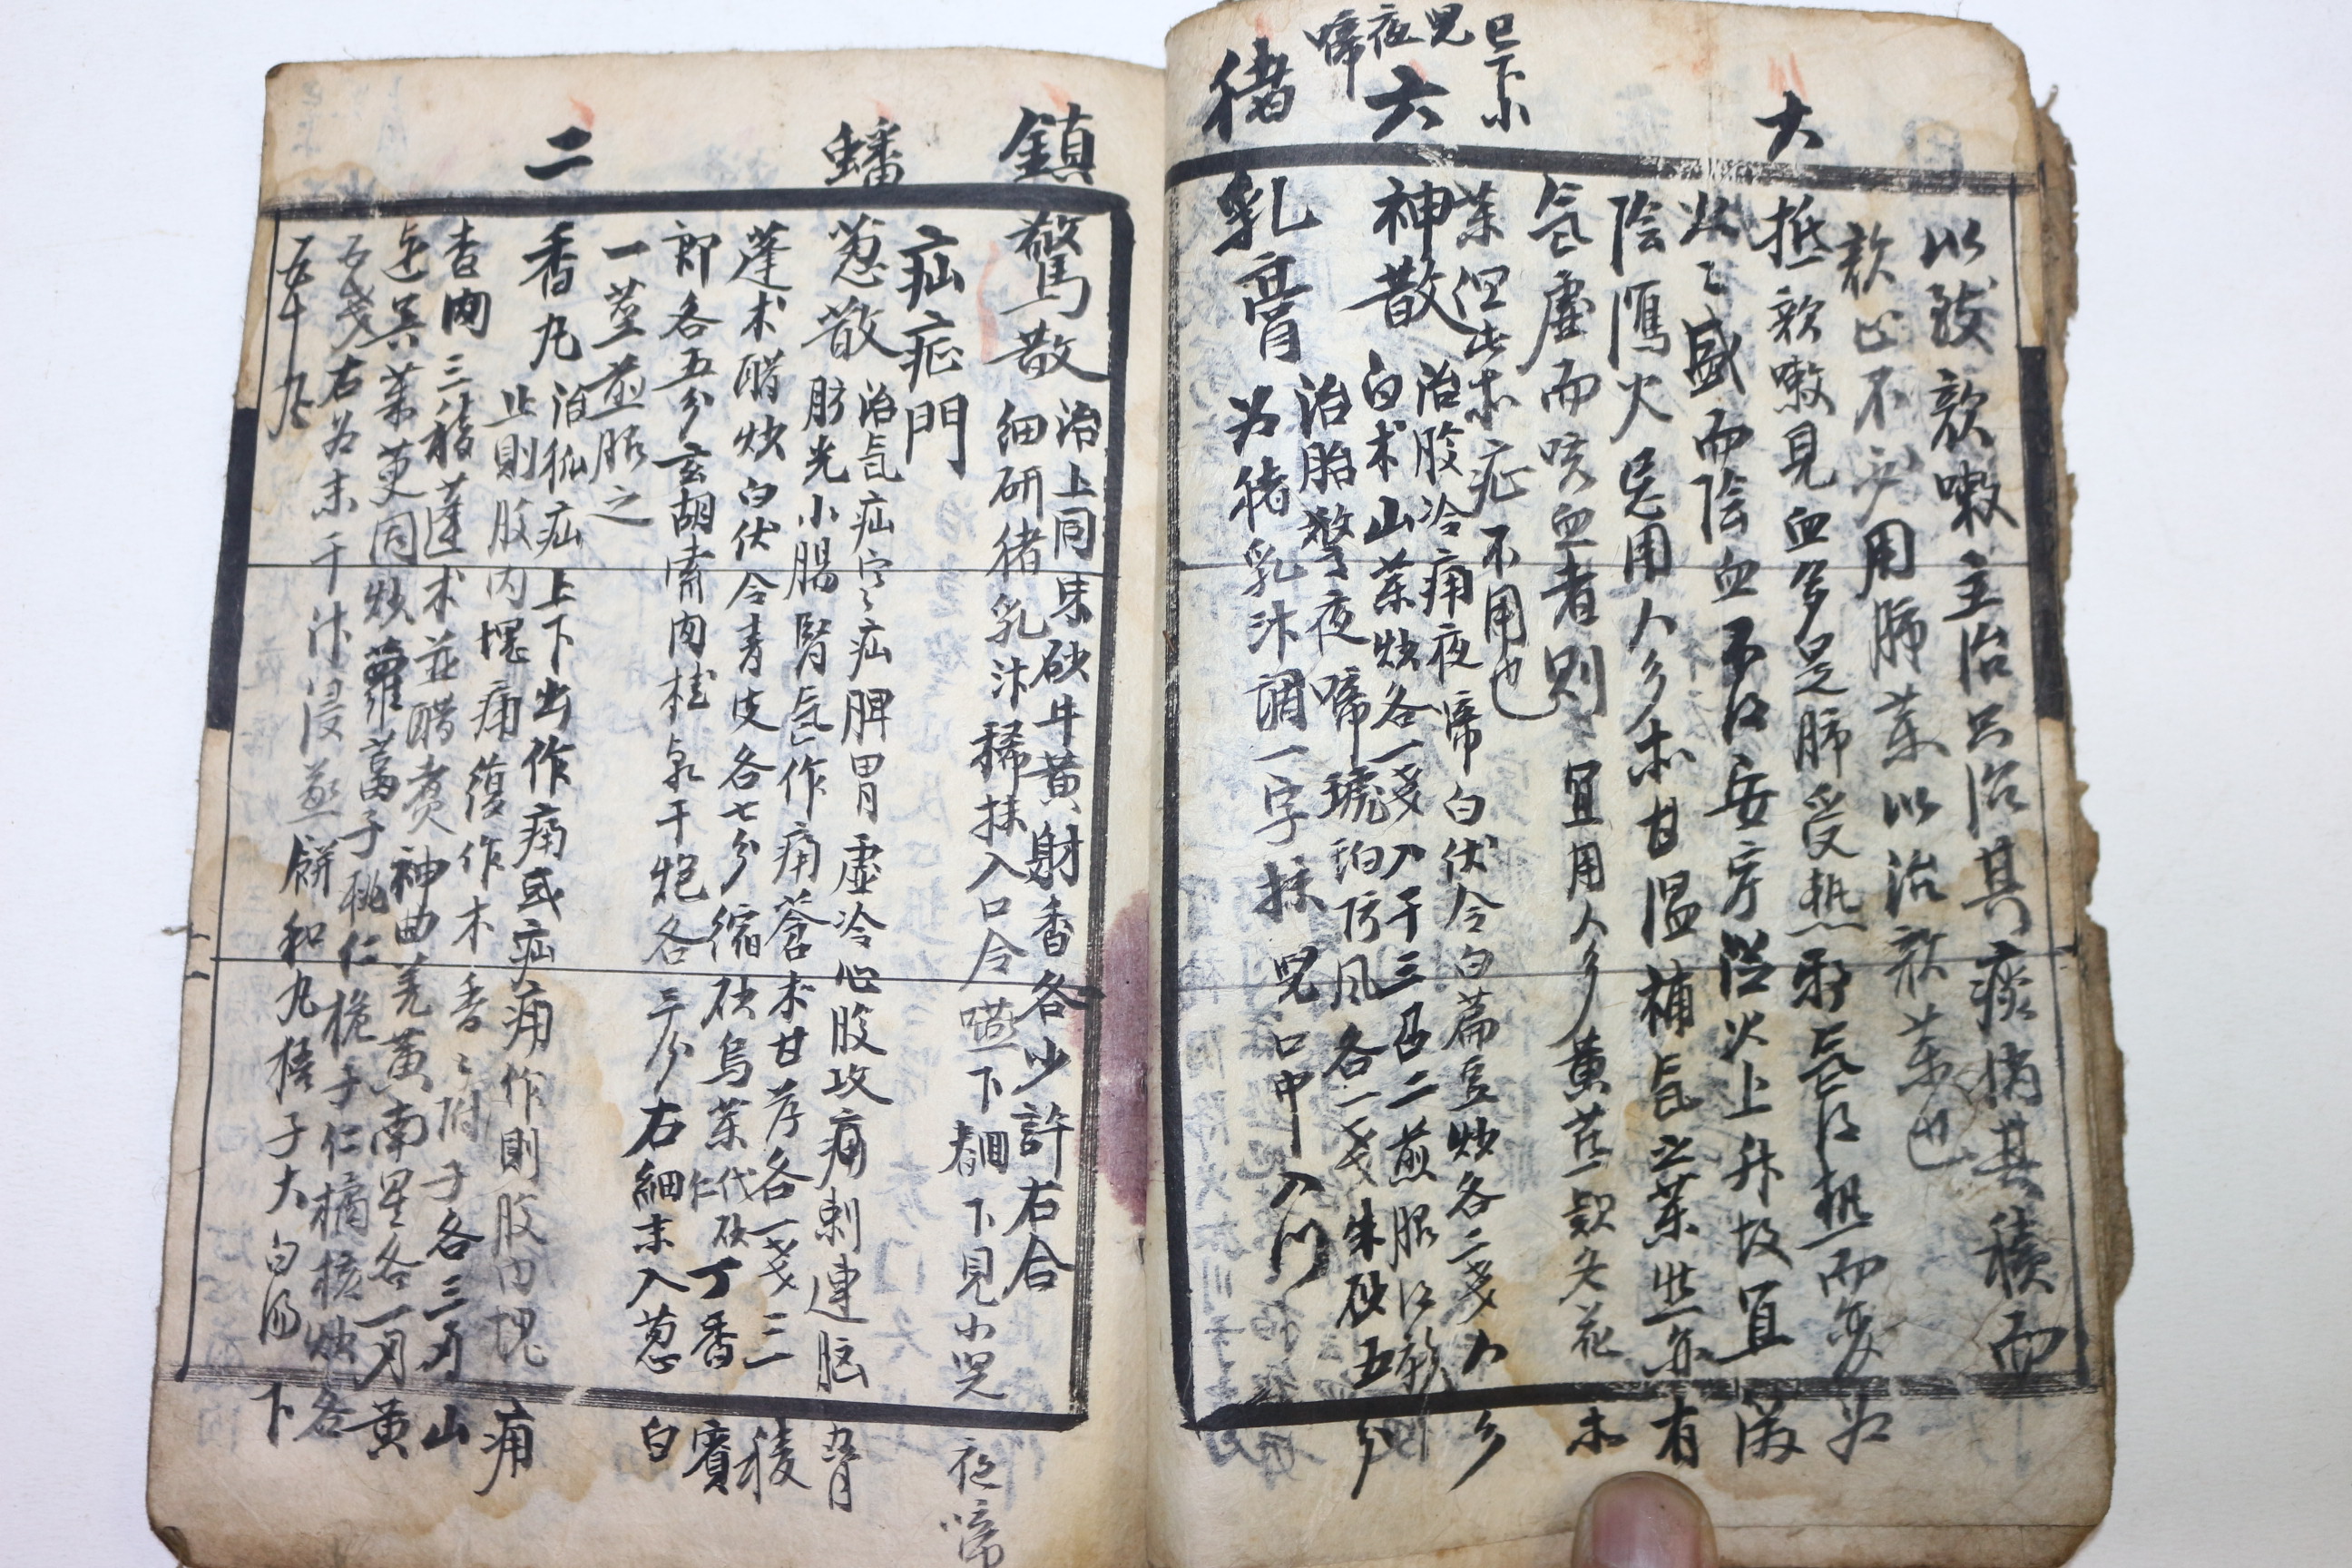 大
以致欬嗽主治只治其痰消其積而
欬止不必用肺藥以治欬藥也
抵欬嗽見血多是肺受熱邪氣得熱而変為
火火盛而陰血不得安寧從火上升故宜瀉
陰降火忌用人參朮甘溫補氣之藥然亦有
氣虛而咳血者則宜用人參黃芪款冬花
藥但此等症不用也
已下小兒夜啼
六神散 治腹冷痛夜啼白伏令白扁豆炒各二戔人參
白朮山藥炒各一戔入干三召二煎服
猪乳膏 治胎驚夜啼琥珀防風各一戔朱砂五分
为猪乳汁調一字抹兒口中入門
鎮驚散 治上同朱砂牛黃射香各少許右合
細研猪乳汁稀抹入口令嚥下 下見小兒夜啼
疝症門
蟠葱散 治氣疝宀疝脾胃虛冷心腹攻痛刺連
膀光小腸腎氣作痛蒼朮甘草各一戔三稜
蓬朮醋炒白伏令青皮各七分縮砂烏藥代砂仁丁香賓
郎各五分玄胡索肉桂泉干炮各三分右細末入葱白
一莖煎服之
二香丸 治狐疝上下出作痛或疝痛作則腹內塊痛
止則腹內塊痛復作木香香附子各三刄山
查肉三稜蓬朮並醋煑神曲羌黃南星各一刄黃
連吳茱萸同炒蘿葍子桃仁梔子仁橘核炒各
五戔右为末干汁浸蒸餅和丸梧子大白湯下
五十丸